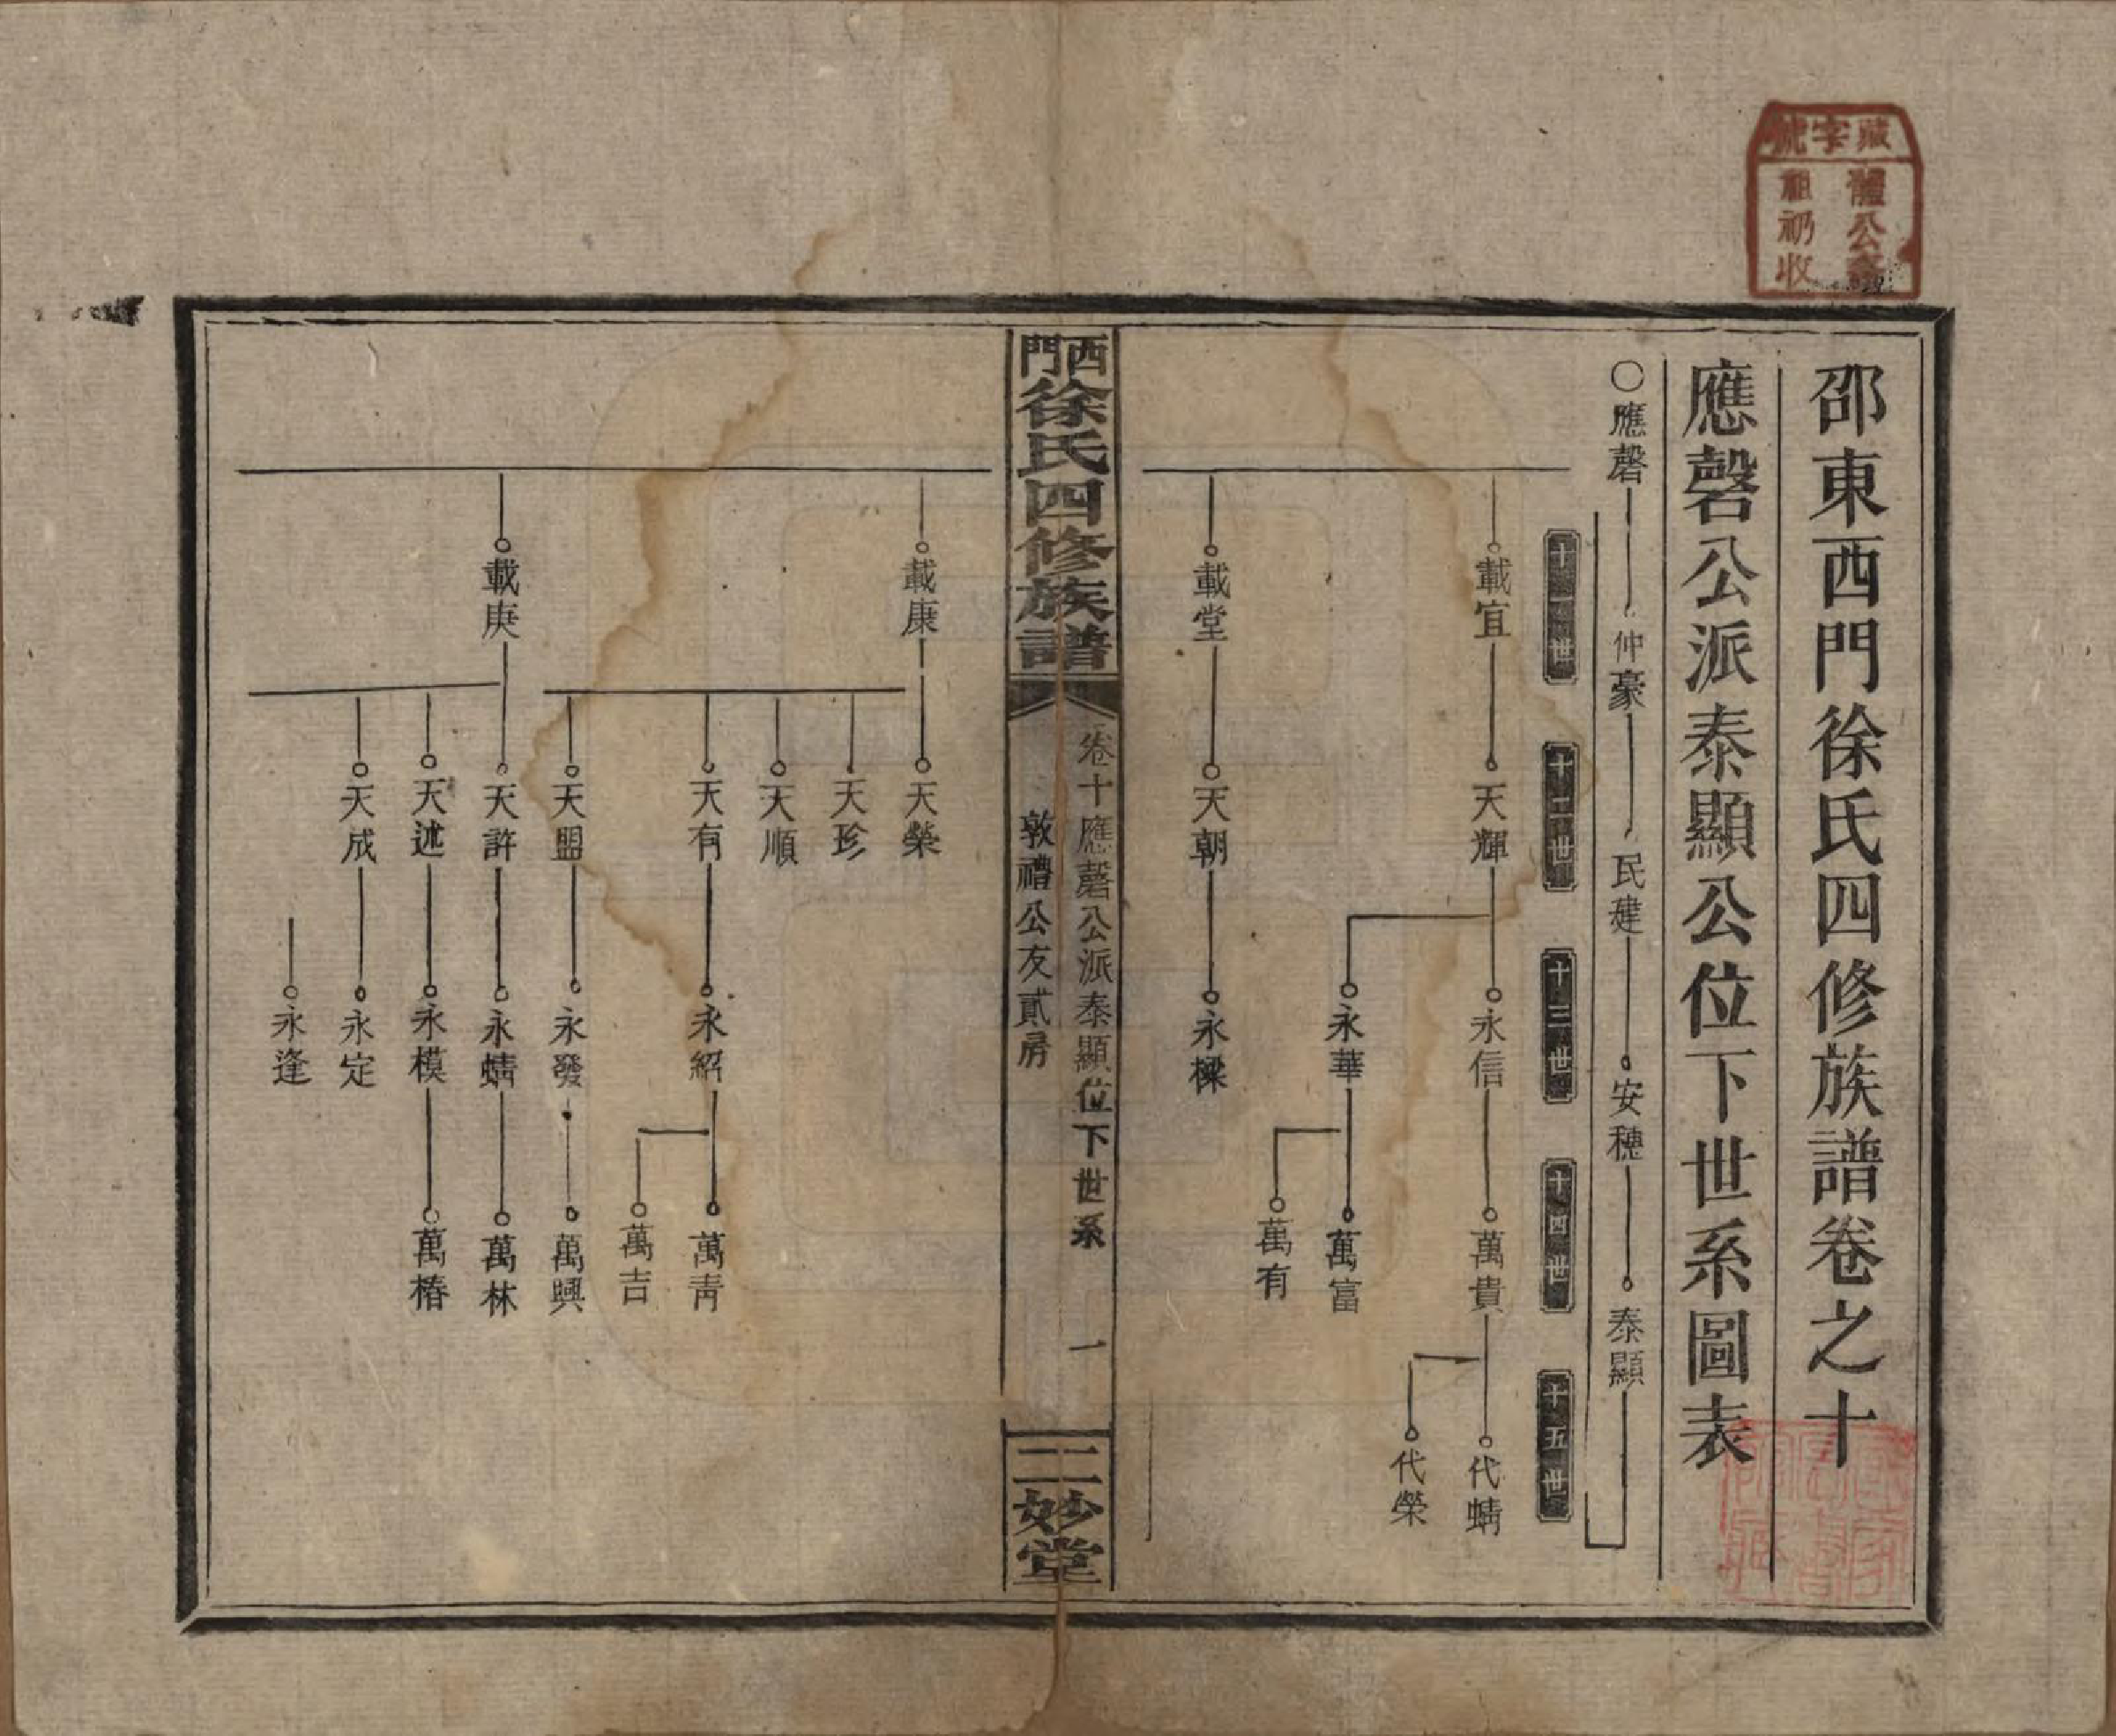 邵東西門徐氏四修族譜卷之十
應磬公派泰顯公位下世系圖表
○應磬 仲豪 民建 安穗 泰顯
十一世 十二世 十三世 十四世 十五世
載宜 天輝 永信 萬貴 代蜻
代榮
永華 萬富
萬有
載堂 天朝 永樑
西門徐氏四修族譜
卷十應磬公派泰顯位下世系 一
敦禮公友貳房
二妙堂
載康 天榮
天珍
天順
天有 永紹 萬靑
萬吉
天盟 永發 萬興
載庚 天許 永蜻 萬林
天述 永模 萬椿
天成 永定
永逢
藏字號
禮公
祖礽收